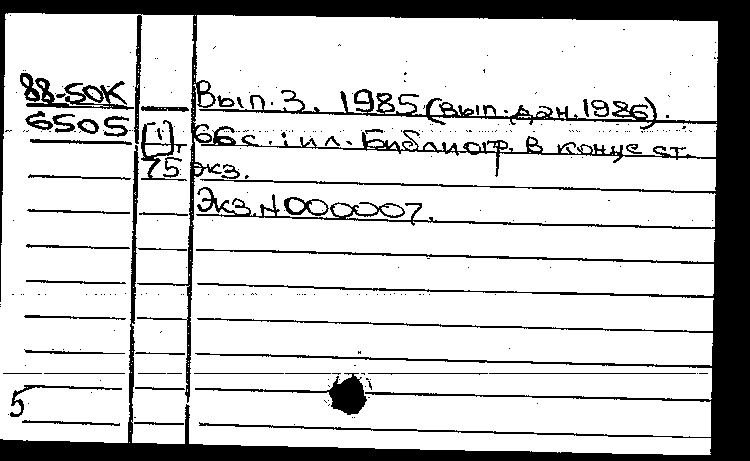 88-50К Вып. 3. 1985 (вып. дан. 1986).
6505 [1] 66 с. : ил. - Библиогр. в конце ст.
т. 75 экз.
Экз. N 000007.
5